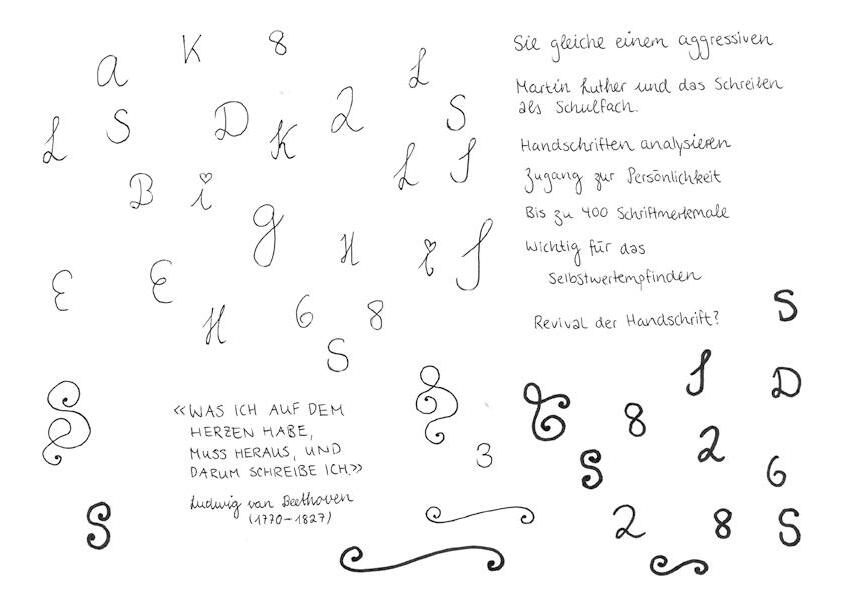 K 8
a L
L S D K 2 S
B i L S
g H i S
E E
H 6 8
S
Sie gleiche einem aggressiven
Martin Luther und das Schreiben
als Schulfach.
Handschriften analysieren
Zugang zur Persönlichkeit
Bis zu 400 Schriftmerkmale
Wichtig für das
Selbstwertempfinden
Revival der Handschrift?
S
S D
S
«WAS ICH AUF DEM
HERZEN HABE,
MUSS HERAUS, UND
DARUM SCHREIBE ICH.»
Ludwig van Beethoven
(1770–1827)
3
8 2
S 6
S
2 8 S